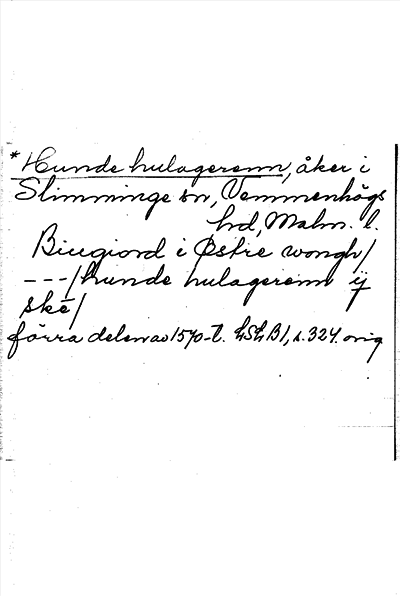 *Hunde hulagerenn, åker i
Slimminge sn, Vemmenhögs
hd, Malm. l.
Biugiord i Østre wongh/
---/hunde hulagerenn ij
ske/
förra delen av 1570-t. LSLB1, s. 324. orig